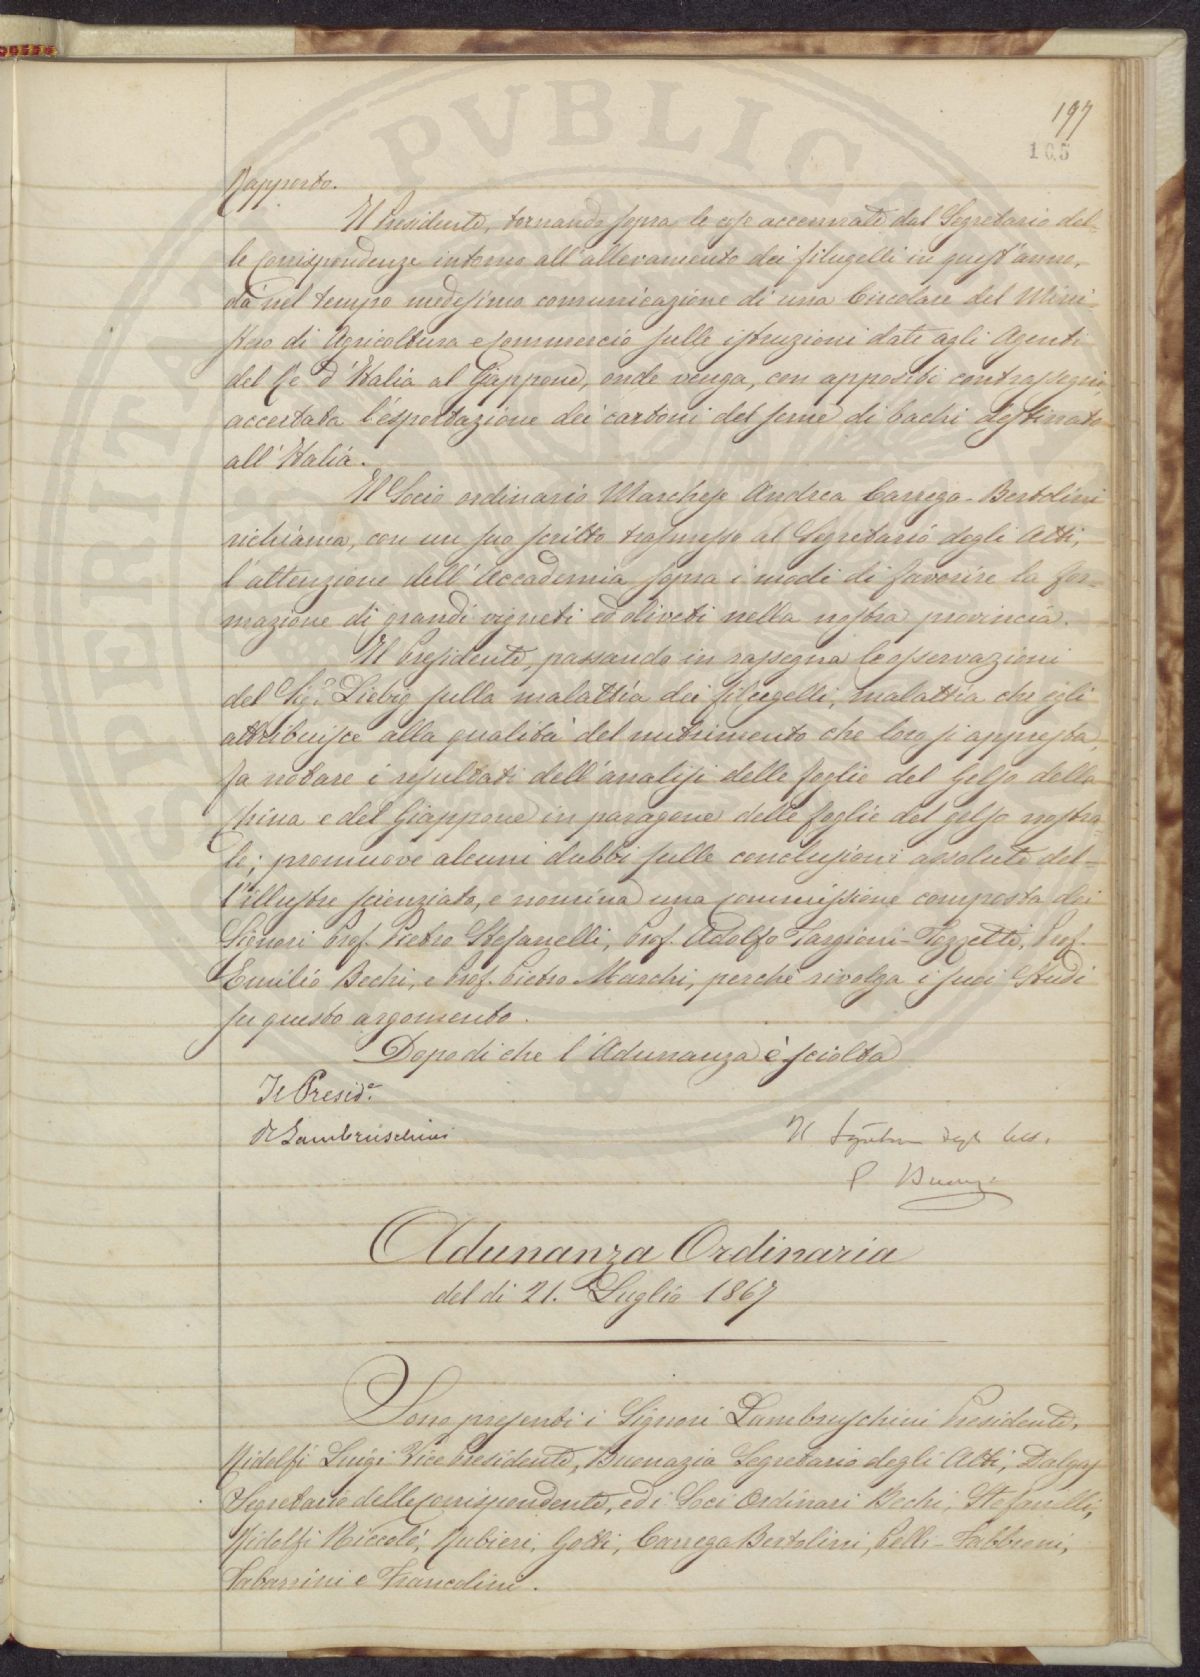 197
105
Rapporto.
Il Presidente, tornando sopra le cose accennate dal Segretario del-
le corrispondenze intorno all'allevamento dei filugelli in quest'anno,
dà nel tempo medesimo comunicazione di una Circolare del Mini-
stero di Agricoltura e Commercio sulle istruzioni date agli Agenti
del Re d'Italia al Giappone, onde venga, con appositi contrassegni
accertata l'esportazione dei cartoni del seme di bachi destinato
all'Italia.
Il Socio ordinario Marchese Andrea Carrega-Bertolini
richiama, con un suo scritto trasmesso al Segretario degli Atti,
l'attenzione dell'Accademia sopra i modi di favorire la for-
mazione di grandi vigneti ed oliveti nella nostra provincia.
Il Presidente, passando in rassegna le osservazioni
del Sig.r Liebig sulla malattia dei filugelli, malattia che egli
attribuisce alla qualità del nutrimento che loro si appresta,
fa notare i resultati dell'analisi delle foglie del Gelso della
China e del Giappone in paragone delle foglie del gelso nostra-
le; promuove alcuni dubbi sulle conclusioni assolute del-
l'illustre scienziato, e nomina una commissione composta dei
Signori Prof. Pietro Stefanelli, Prof. Adolfo Targioni-Tozzetti, Prof.
Emilio Bechi, e Prof. Pietro Marchi, perchè rivolga i suoi Studi
su questo argomento.
Dopo di che l'Adunanza è sciolta
Il Presid.e
R Lambruschini
Il Segretario degli Atti.
Adunanza Ordinaria
del dì 21. Luglio 1867
Sono presenti i Signori Lambruschini Presidente,
Ridolfi Luigi Vice Presidente, Buonazia Segretario degli Atti, Dalgas
Segretario delle Corrispondente, ed i Soci Ordinari Bechi, Stefanelli,
Ridolfi Niccolò, Rubieri, Gotti, Carrega Bertolini, Pelli-Fabbroni,
Tabarrini e Francolini.